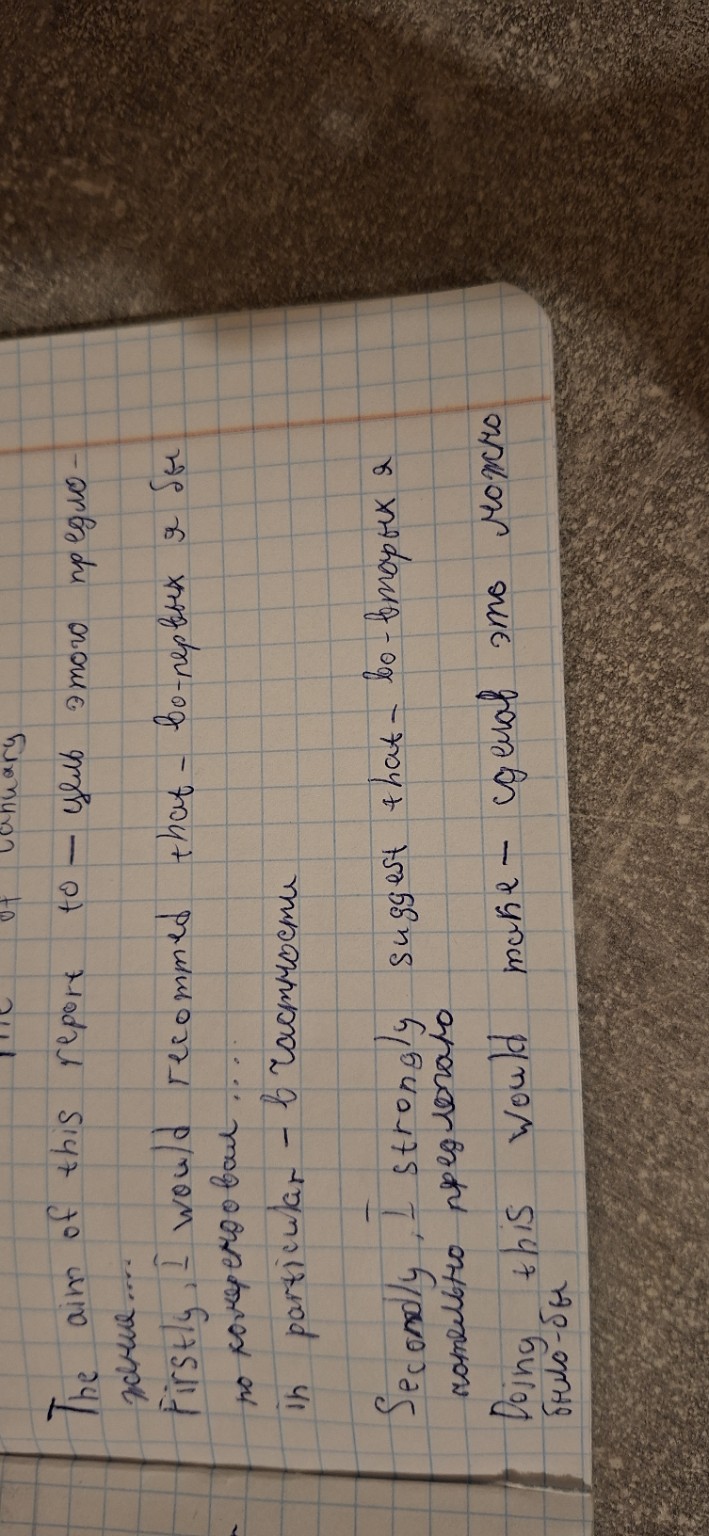 of January
The aim of this report to — цель этого предло-
жения....
Firstly, I would recommed that – во-первых я бы
in particular – в частности
Secondly, I strongly suggest that – во-вторых я
предлагаю
Doing this would make – сделав это можно
было-бы